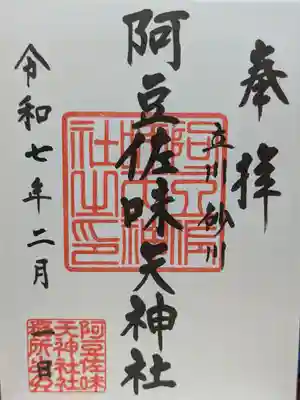 奉拝
立川砂川
阿豆佐味天神社
令和七年二月
阿豆佐味
天神社社
一月